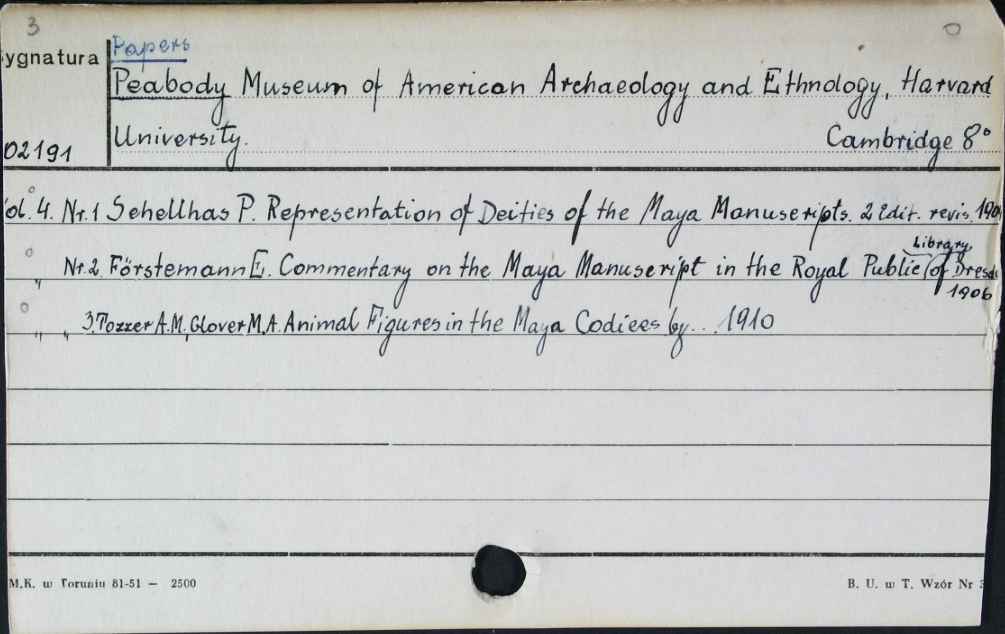 3 0
ygnatura Papers
Peabody Museum of American Archaeology and Ethnology, Harvard
02191 University. Cambridge 8°
ol. 4. Nr. 1 Schellhas P. Representation of Deities of the Maya Manuscripts. 2 Edit. revis. 190
" Nr. 2. Förstemann E. Commentary on the Maya Manuscript in the Royal Public Library (of Dresd
1906
" " 3. Tozzer A.M., Glover M.A. Animal Figures in the Maya Codices by... 1910
M.K. w Toruniu 81-51 — 2500 B. U. w T. Wzór Nr